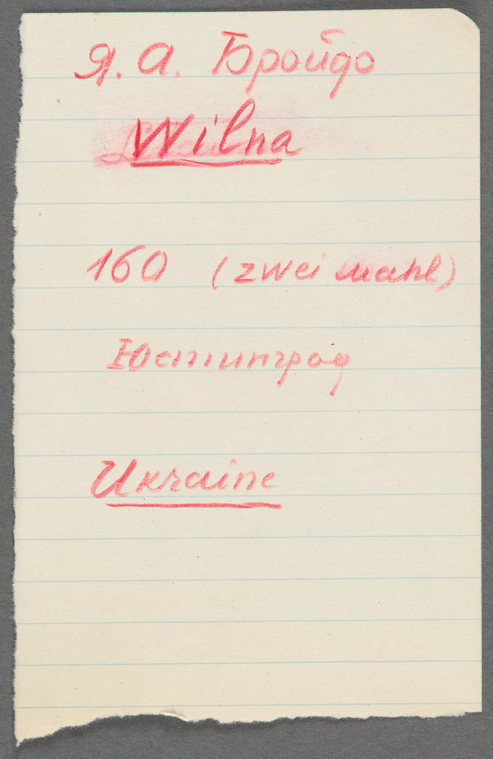 Я. А. Бройдо
Wilna
160 (zwei mahl)
Юстинград
Ukraine